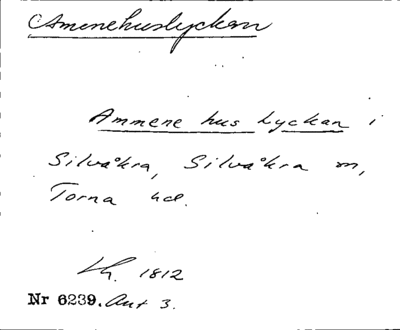 Amenehuslyckan
Ammene hus Lyckan i
Silvåkra, Silvåkra sn,
Torna hd.
Lh. 1812
Nr 6239. Akt 3.